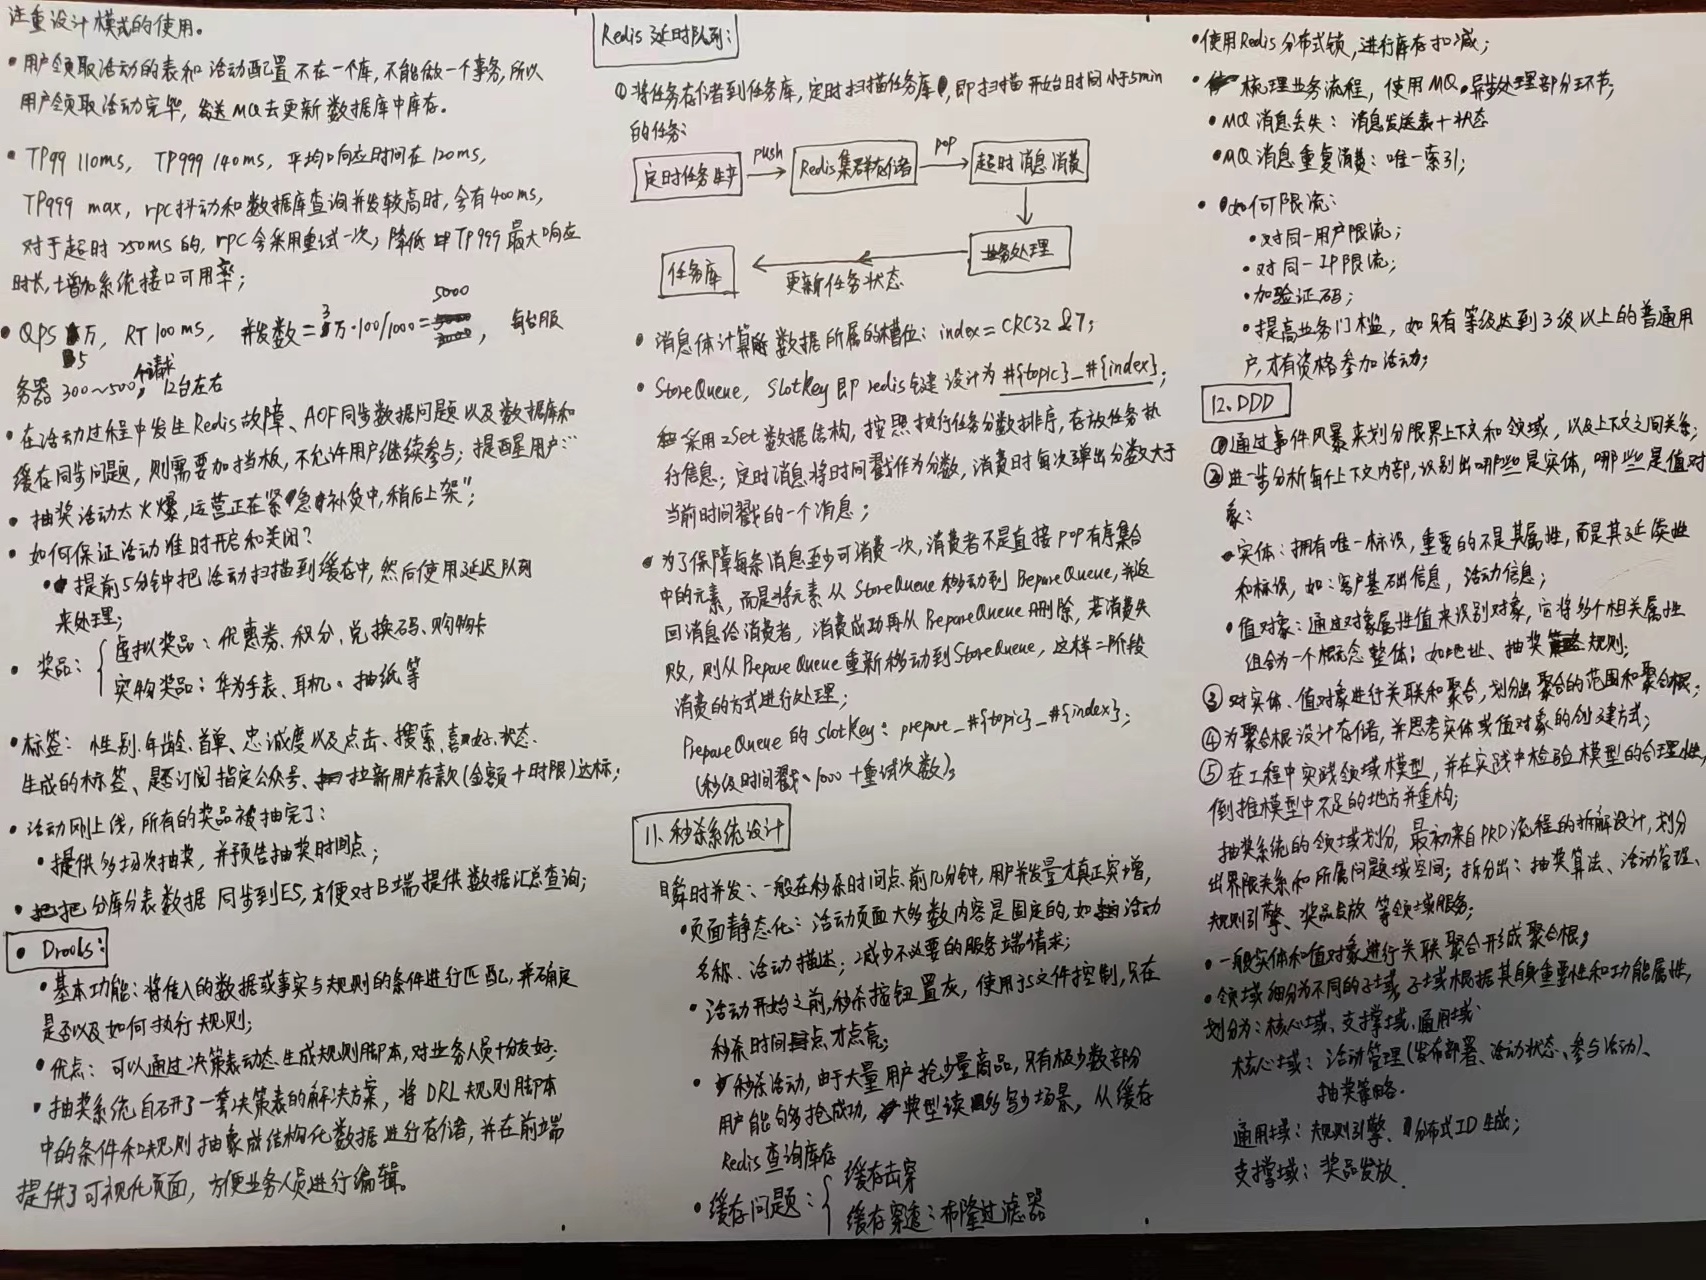 注重设计模式的使用。
• 用户领取活动的表和活动配置不在一个库,不能做一个事务,所以
用户领取活动完毕,发送MQ去更新数据库中库存。
• TP99 110ms, TP999 140ms, 平均响应时间在120ms,
TP999 max, rpc抖动和数据库查询并发较高时,会有400ms,
对于超时250ms的,rpc会采用重试一次,降低TP999最大响应
时长,增加系统接口可用率;
5000
• QPS 万, RT 100ms, 并发数=3万·100/1000= , 每台服
5
务器300~500个请求, 12台左右
• 在活动过程中发生Redis故障、AOF同步数据问题以及数据库和
缓存同步问题,则需要加挡板,不允许用户继续参与;提醒用户:“
• 抽奖活动太火爆,运营正在紧急补货中,稍后上架”;
• 如何保证活动准时开启和关闭?
• 提前5分钟把活动扫描到缓存中,然后使用延迟队列
来处理;
• 奖品: { 虚拟奖品:优惠券、积分、兑换码、购物卡
实物奖品:华为手表、耳机、抽纸等
• 标签: 性别、年龄、首单、忠诚度以及点击、搜索、喜好、状态、
生成的标签、是否订阅指定公众号、拉新用户存款(金额+时限)达标;
• 活动刚上线,所有的奖品被抽完了:
• 提供多场次抽奖,并预告抽奖时间点;
• 把分库分表数据同步到ES,方便对B端提供数据汇总查询;
• Drools:
• 基本功能:将传入的数据或事实与规则的条件进行匹配,并确定
是否以及如何执行规则;
• 优点: 可以通过决策表动态生成规则脚本,对业务人员十分友好;
• 抽奖系统自研了一套决策表的解决方案,将DRL规则脚本
中的条件和规则抽象成结构化数据进行存储,并在前端
提供了可视化页面,方便业务人员进行编辑。
Redis延时队列:
① 将任务存储到任务库,定时扫描任务库,即扫描开始日时间小于5min
的任务:
定时任务生产 push Redis集群存储 pop 超时消息消费
业务处理
任务库 更新任务状态
• 消息体计算所数据所属的槽位: index = CRC32 & 7;
• StoreQueue, SlotKey 即redis键设计为 #{topic}_#{index};
采用zSet数据结构,按照执行任务分数排序,存放任务执
行信息;定时消息将时间戳作为分数,消费时每次弹出分数大于
当前时间戳的一个消息;
• 为了保障每条消息至少可消费一次,消费者不是直接pop有序集合
中的元素,而是将元素从StoreQueue移动到PrepareQueue,并返
回消息给消费者,消费成功再从PrepareQueue中删除,若消费失
败,则从PrepareQueue重新移动到StoreQueue,这样二阶段
消费的方式进行处理;
PrepareQueue的slotKey: prepare_#{topic}_#{index};
(秒级时间戳*1000+重试次数);
11. 秒杀系统设计
瞬时并发:一般在秒杀时间点前几分钟,用户并发量才真正突增,
• 页面静态化:活动页面大多数内容是固定的,如活动
名称、活动描述;减少不必要的服务端请求;
• 活动开始之前,秒杀按钮置灰,使用js文件控制,只在
秒杀时间点才点亮;
• 秒杀活动,由于大量用户抢少量商品,只有极少数部分
用户能够抢成功,典型读多写少场景,从缓存
Redis查询库存
• 缓存问题: { 缓存击穿
缓存穿透:布隆过滤器
• 使用Redis分布式锁,进行库存扣减;
• 梳理业务流程,使用MQ异步处理部分环节;
• MQ消息丢失: 消息发送表+状态
• MQ消息重复消费:唯一索引;
• 如何限流:
• 对同一用户限流;
• 对同一IP限流;
• 加验证码;
• 提高业务门槛,如只有等级达到3级以上的普通用
户,才有资格参加活动;
12. DDD
①通过事件风暴来划分限界上下文和领域,以及上下文之间关系;
②进一步分析每个上下文内部,识别出哪些是实体,哪些是值对
象:
• 实体:拥有唯一标识,重要的不是其属性,而是其延续性
和标识,如:客户基础信息,活动信息;
• 值对象:通过对象属性值来识别对象,它将多个相关属性
组合为一个概念整体;如地址、抽奖规则;
③ 对实体、值对象进行关联和聚合,划分出聚合的范围和聚合根;
④ 为聚合根设计存储,并思考实体或值对象的创建方式;
⑤ 在工程中实践领域模型,并在实践中检验模型的合理性,
倒推模型中不足的地方并重构;
抽奖系统的领域划分,最初来自PRD流程的拆解设计,划分
出界限关系和所属问题域空间;拆分出:抽奖算法、活动管理、
规则引擎、奖品发放等领域服务;
• 一般实体和值对象进行关联聚合形成聚合根;
• 领域细分为不同的子域,子域根据其自身重要性和功能属性,
划分为:核心域、支撑域、通用域
核心域: 活动管理(发布部署、活动状态、参与活动)、
抽奖策略.
通用域:规则引擎、分布式ID生成;
支撑域:奖品发放.